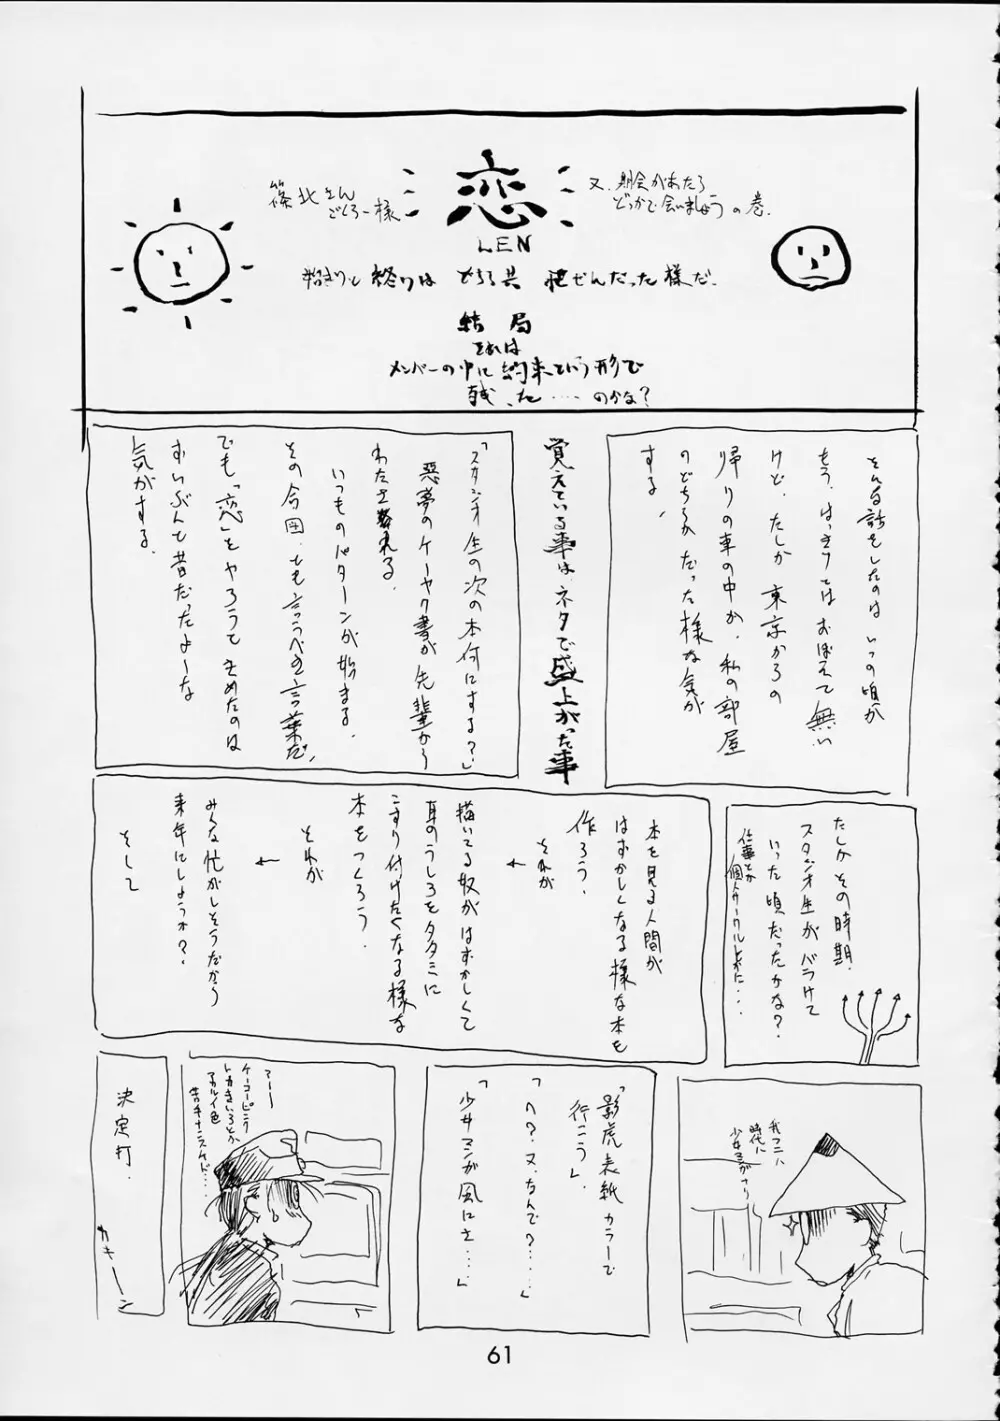 恋
LEN
篠北さん
ごくろー様
又、機会があたら
どっかで会いましょうの巻.
始まりと終りは どちら共 唖ぜんだった様だ.
結局
それは
メンバーの中に約束という形で
残った……のかな?
そんな話をしたのは いつの頃か
もう、はっきりではおぼえて無い
けど、たしか 東京からの
帰りの車の中か、私の部屋
のどちらかだった様な気が
する。
覚えている事は、ネタで盛上がった事
「スタジオ生の次の本何にする?」
悪夢のケーヤク書が先輩から
わたされる.
いつものパターンが始まる.
その合図、とも言うべき言葉だ.
でも「恋」をやろうてきめたのは
ずいぶんと昔だったよーな
気がする.
たしかその時期.
スタジオ生がバラけて
いった頃だったかな?
仕事とか
個人サークルとかに…
本を見る人間が
はずかしくなる様な本を
作ろう.
それが
←
描いてる奴がはずかしくて
耳のうしろをタタミに
こすり付けたくなる様な
本をつくろう.
それが
←
みんな忙がしそうだから
来年にしようか?
そして
我々ニハ
時代ハ
少女マンガナリ
「影虎表紙カラーで
行こう」.
「へ?、又、なんで?……」
「少女マンガ風にさ……」
アーー
ケーコーピンク
トカきいろとか
アカルイ色
苦手ナンスケド……
決定打.
カキーーン
61